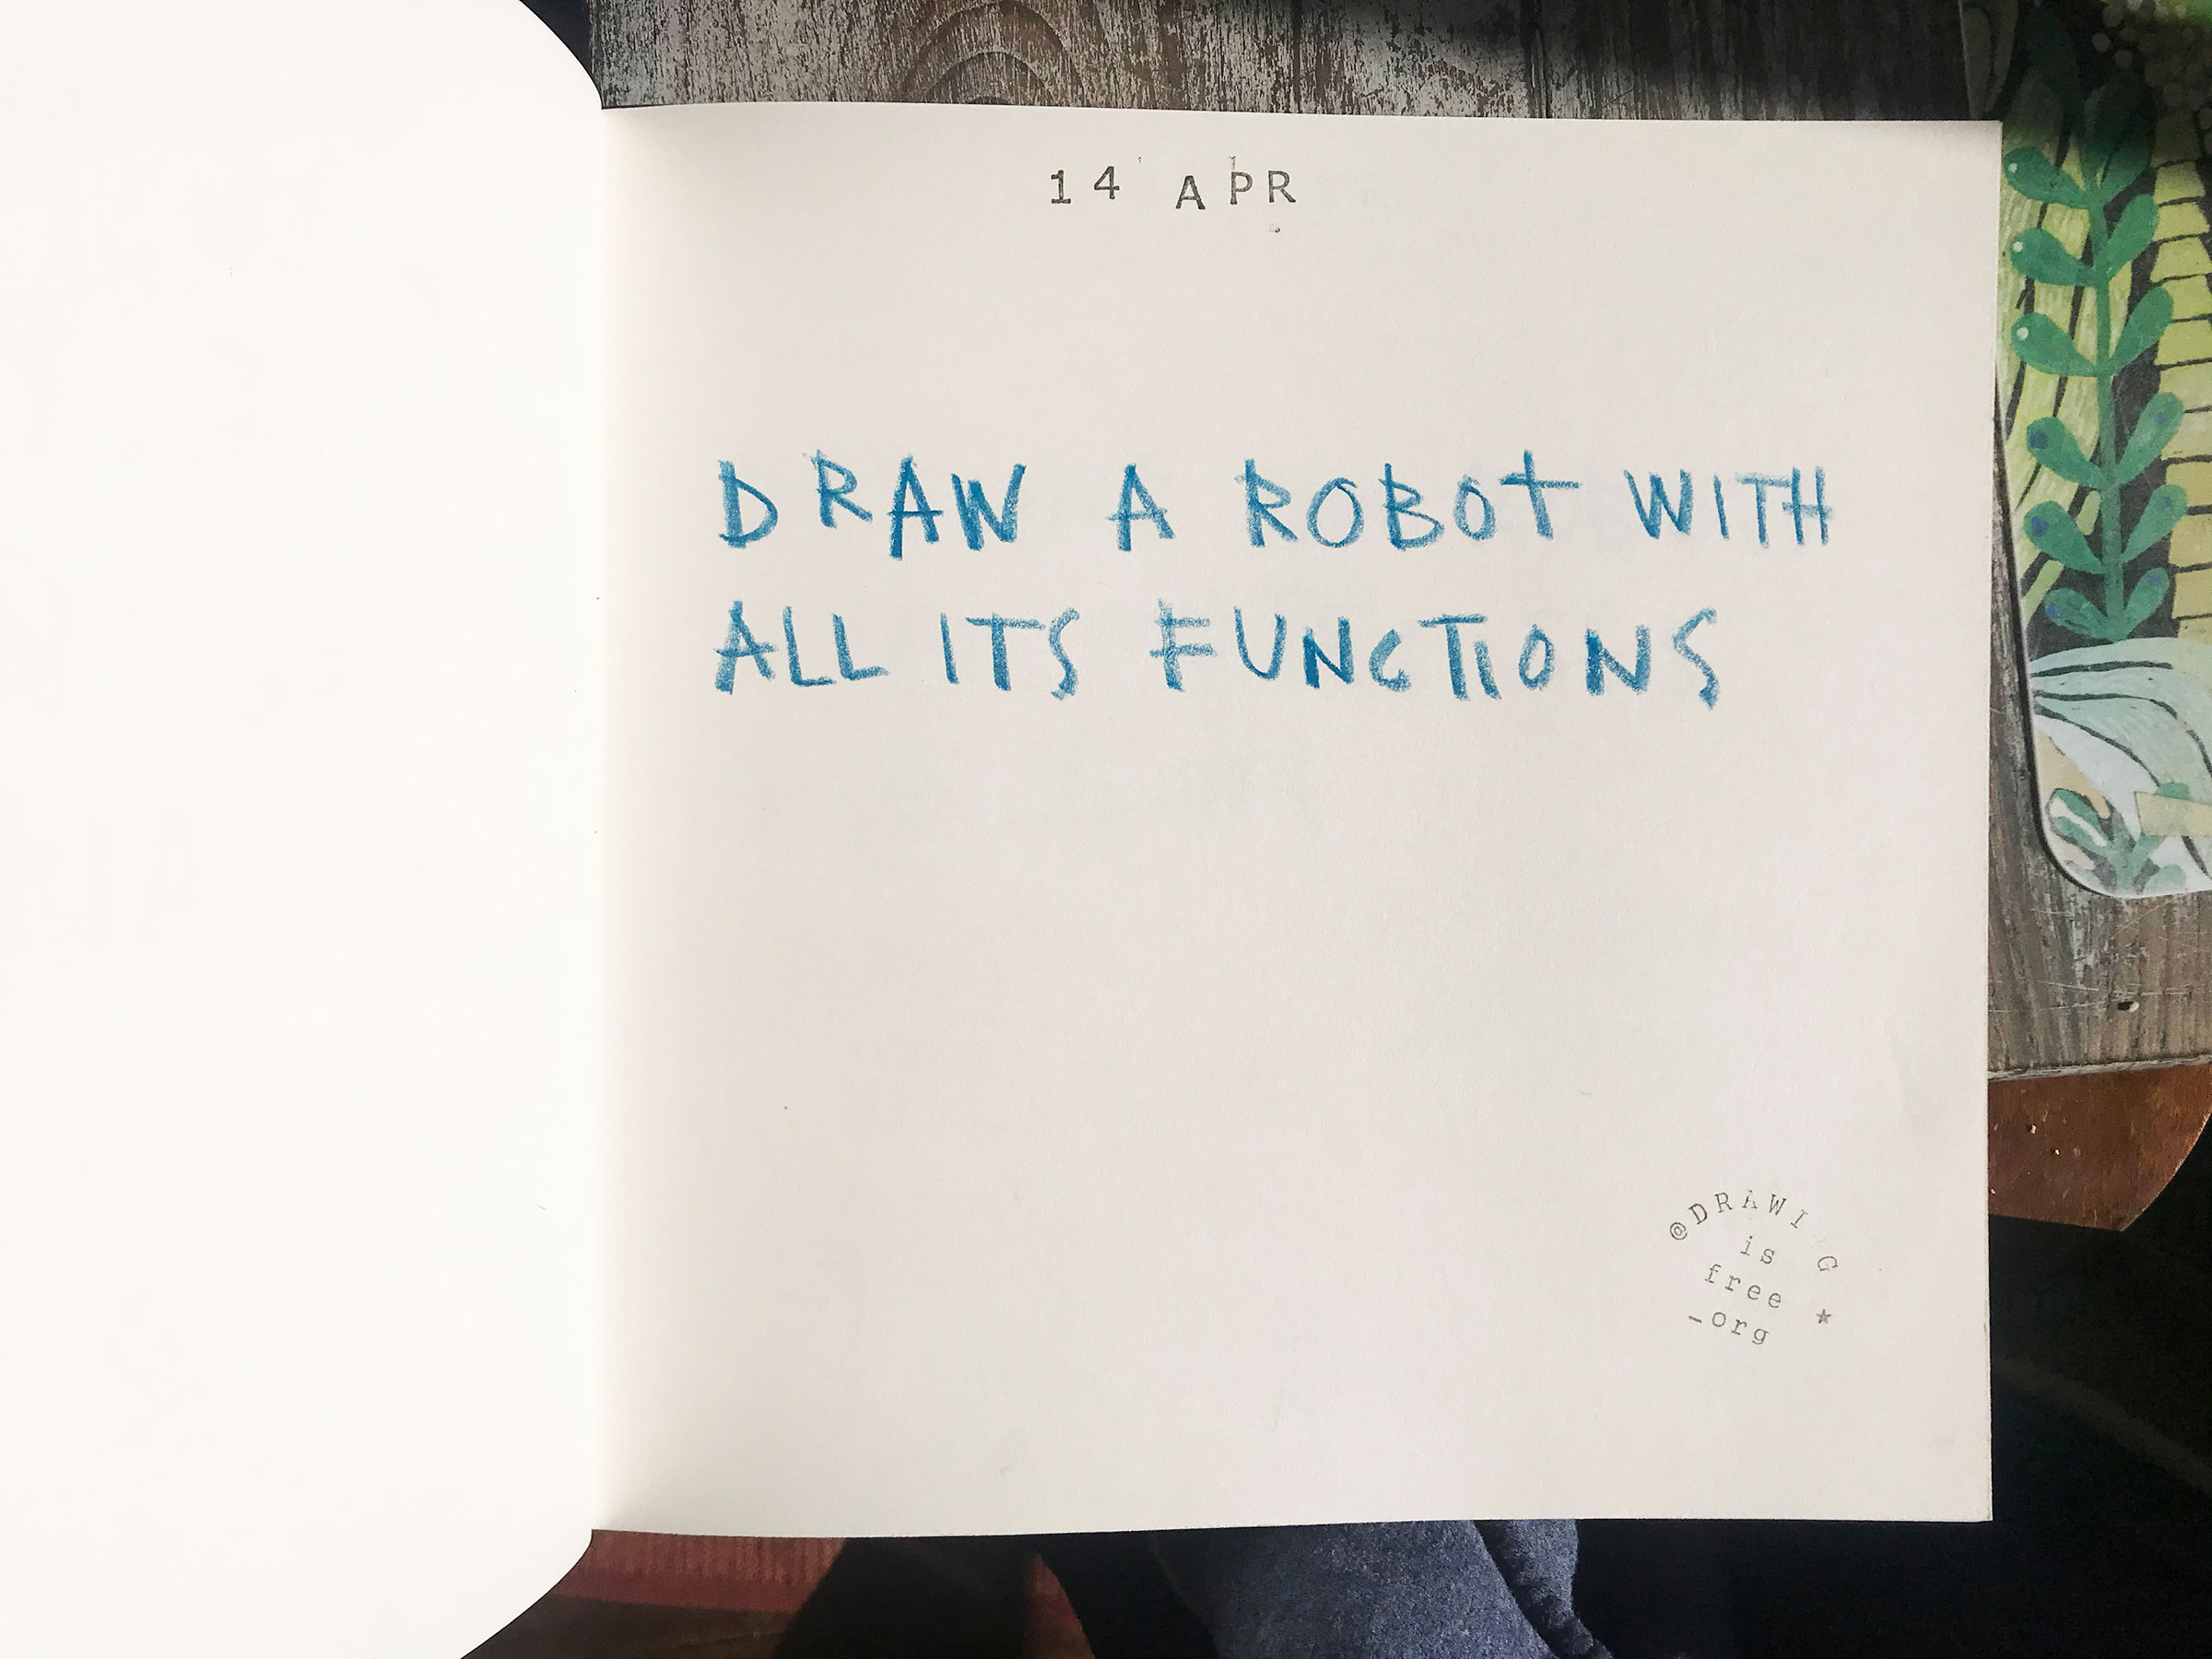 14 APR
DRAW A ROBOT WITH
ALL ITS FUNCTIONS
@DRAWI G
is
free
-org